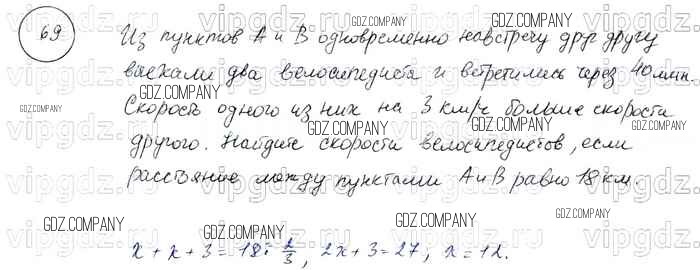 69
Из пунктов А и В одновременно навстречу друг другу
выехали два велосипедиста и встретились через 40 мин.
Скорость одного из них на 3 км/ч больше скорости
другого. Найдите скорости велосипедистов, если
расстояние между пунктами А и В равно 18 км.
x + x + 3 = 18 : 2/3, 2x + 3 = 27, x = 12.
GDZ.COMPANY
vipgdz.com